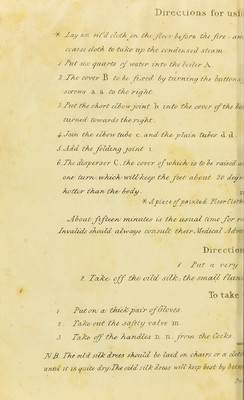 Directions for usi
* Lay an oil'd cloth on the floor before the fire, an
coarse cloth to take up the condensed steam
1 Put six quarts of water into the boiler A.
2. The cover B to be fixed by turning the buttons
screws a. a. to the right.
3 Put the short elbow joint b into the cover of the bo
turned towards the right.
4. Join the elbow tube c. and the plain tubes d d
5. Add the folding joint i
6. The disperser C, the cover of which is to be raised a
one turn which will keep the feet about 20 degr
hotter than the body.
* A piece of painted Floor Cloth
About fifteen minutes is the usual time for r
Invalids should always consult their Medical Advi
Direction
1 Put a very
2. Take off the oild silk: the small Flan
To take
1 Put on a thick pair of Gloves
2. Take out the safety valve m
3. Take off the handles n n. from the Cocks
N.B. The oild silk dress should be laid on chairs or a cloth
until it is quite dry. The oild silk dress will keep best by bein